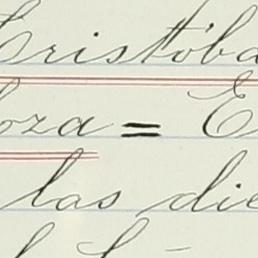 Cristóba
oza = E
las die